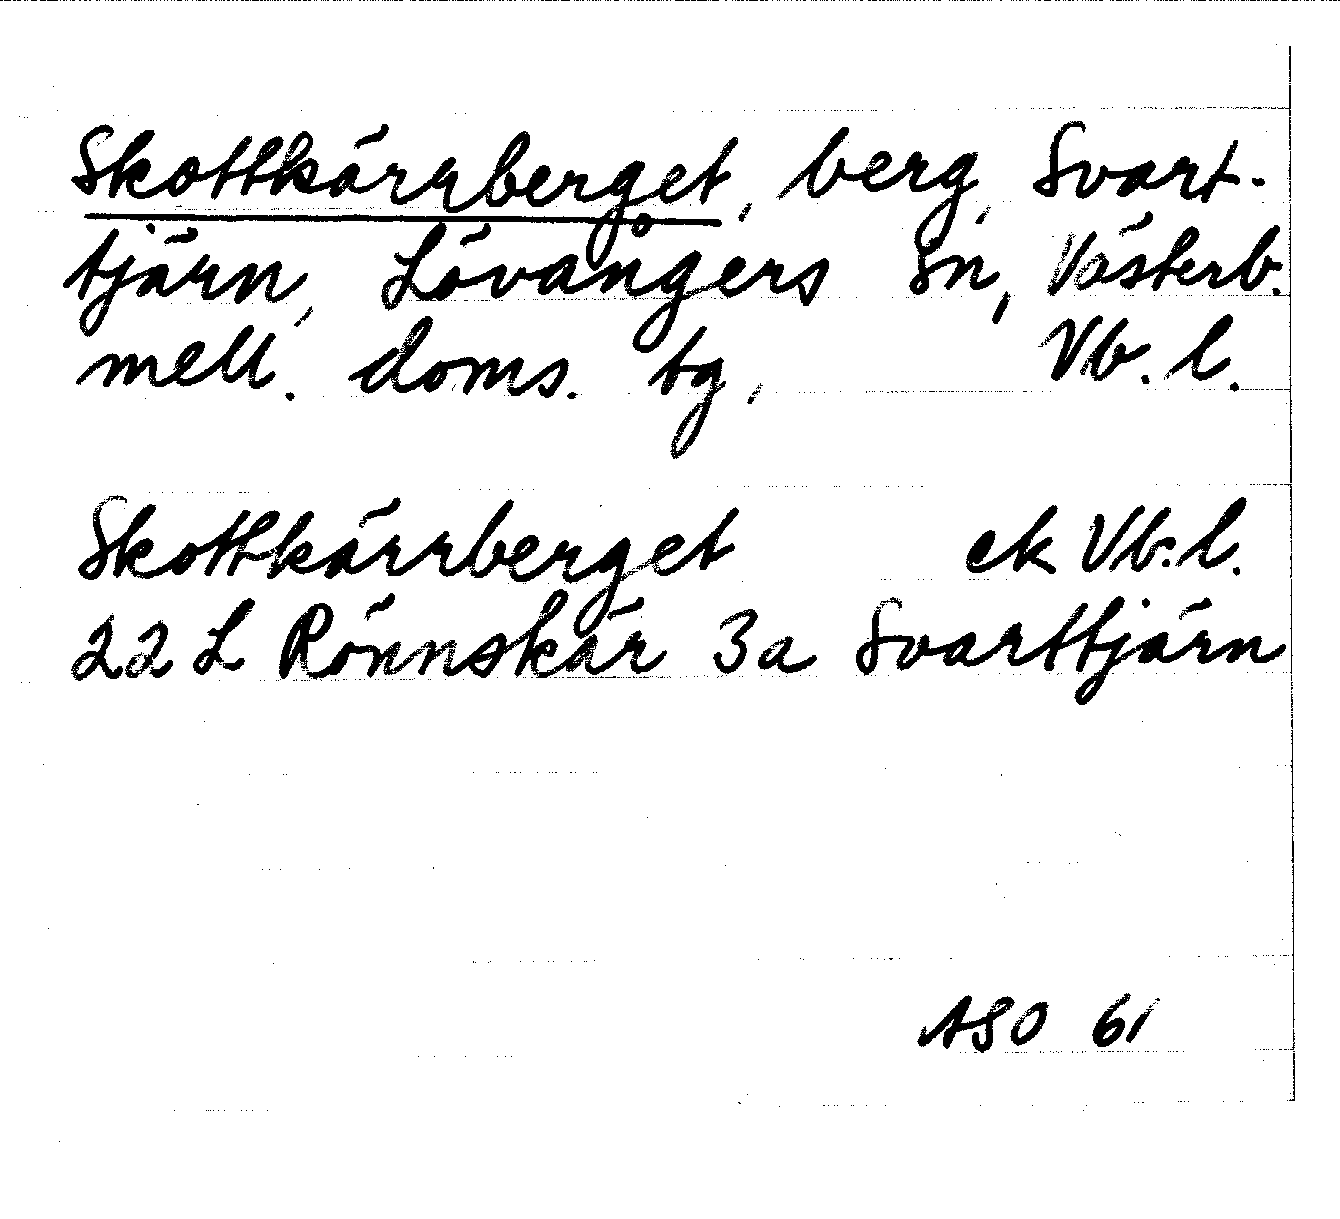 Skottkärrberget, berg, Svart-
tjärn, Lövångers sn, Västerb.
mell. doms. tg, Vb. l.
Skottkärrberget ek Vb. l.
22 L Rönnskär 3a Svarttjärn
ASO 61